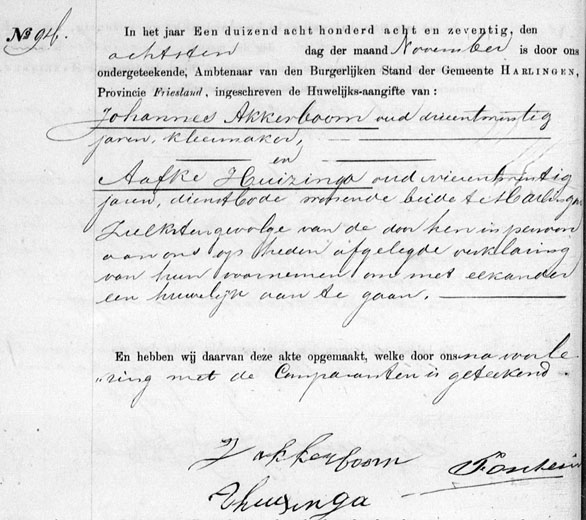 No 94.
In het jaar Een duizend acht honderd acht en zeventig, den
achtsten dag der maand November is door ons
ondergeteekende, Ambtenaar van den Burgerlijken Stand der Gemeente HARLINGEN,
Provincie Friesland, ingeschreven de Huwelijks-aangifte van:
Johannes Akkerboom oud drieentwintig
jaren, kleermaker,
en
Aafke Huizinga oud vierentwintig
jaren, dienstbode wonende beide te Harlingen
Zulks tengevolge van de door hen in persoon
aan ons op heden afgelegde verklaring
van hun voornemen om met elkander
een huwelijk aan te gaan.
En hebben wij daarvan deze akte opgemaakt, welke door ons na voorle
"zing met de Comparanten is geteekend.
J Akkerboom
Huizinga
Fontein